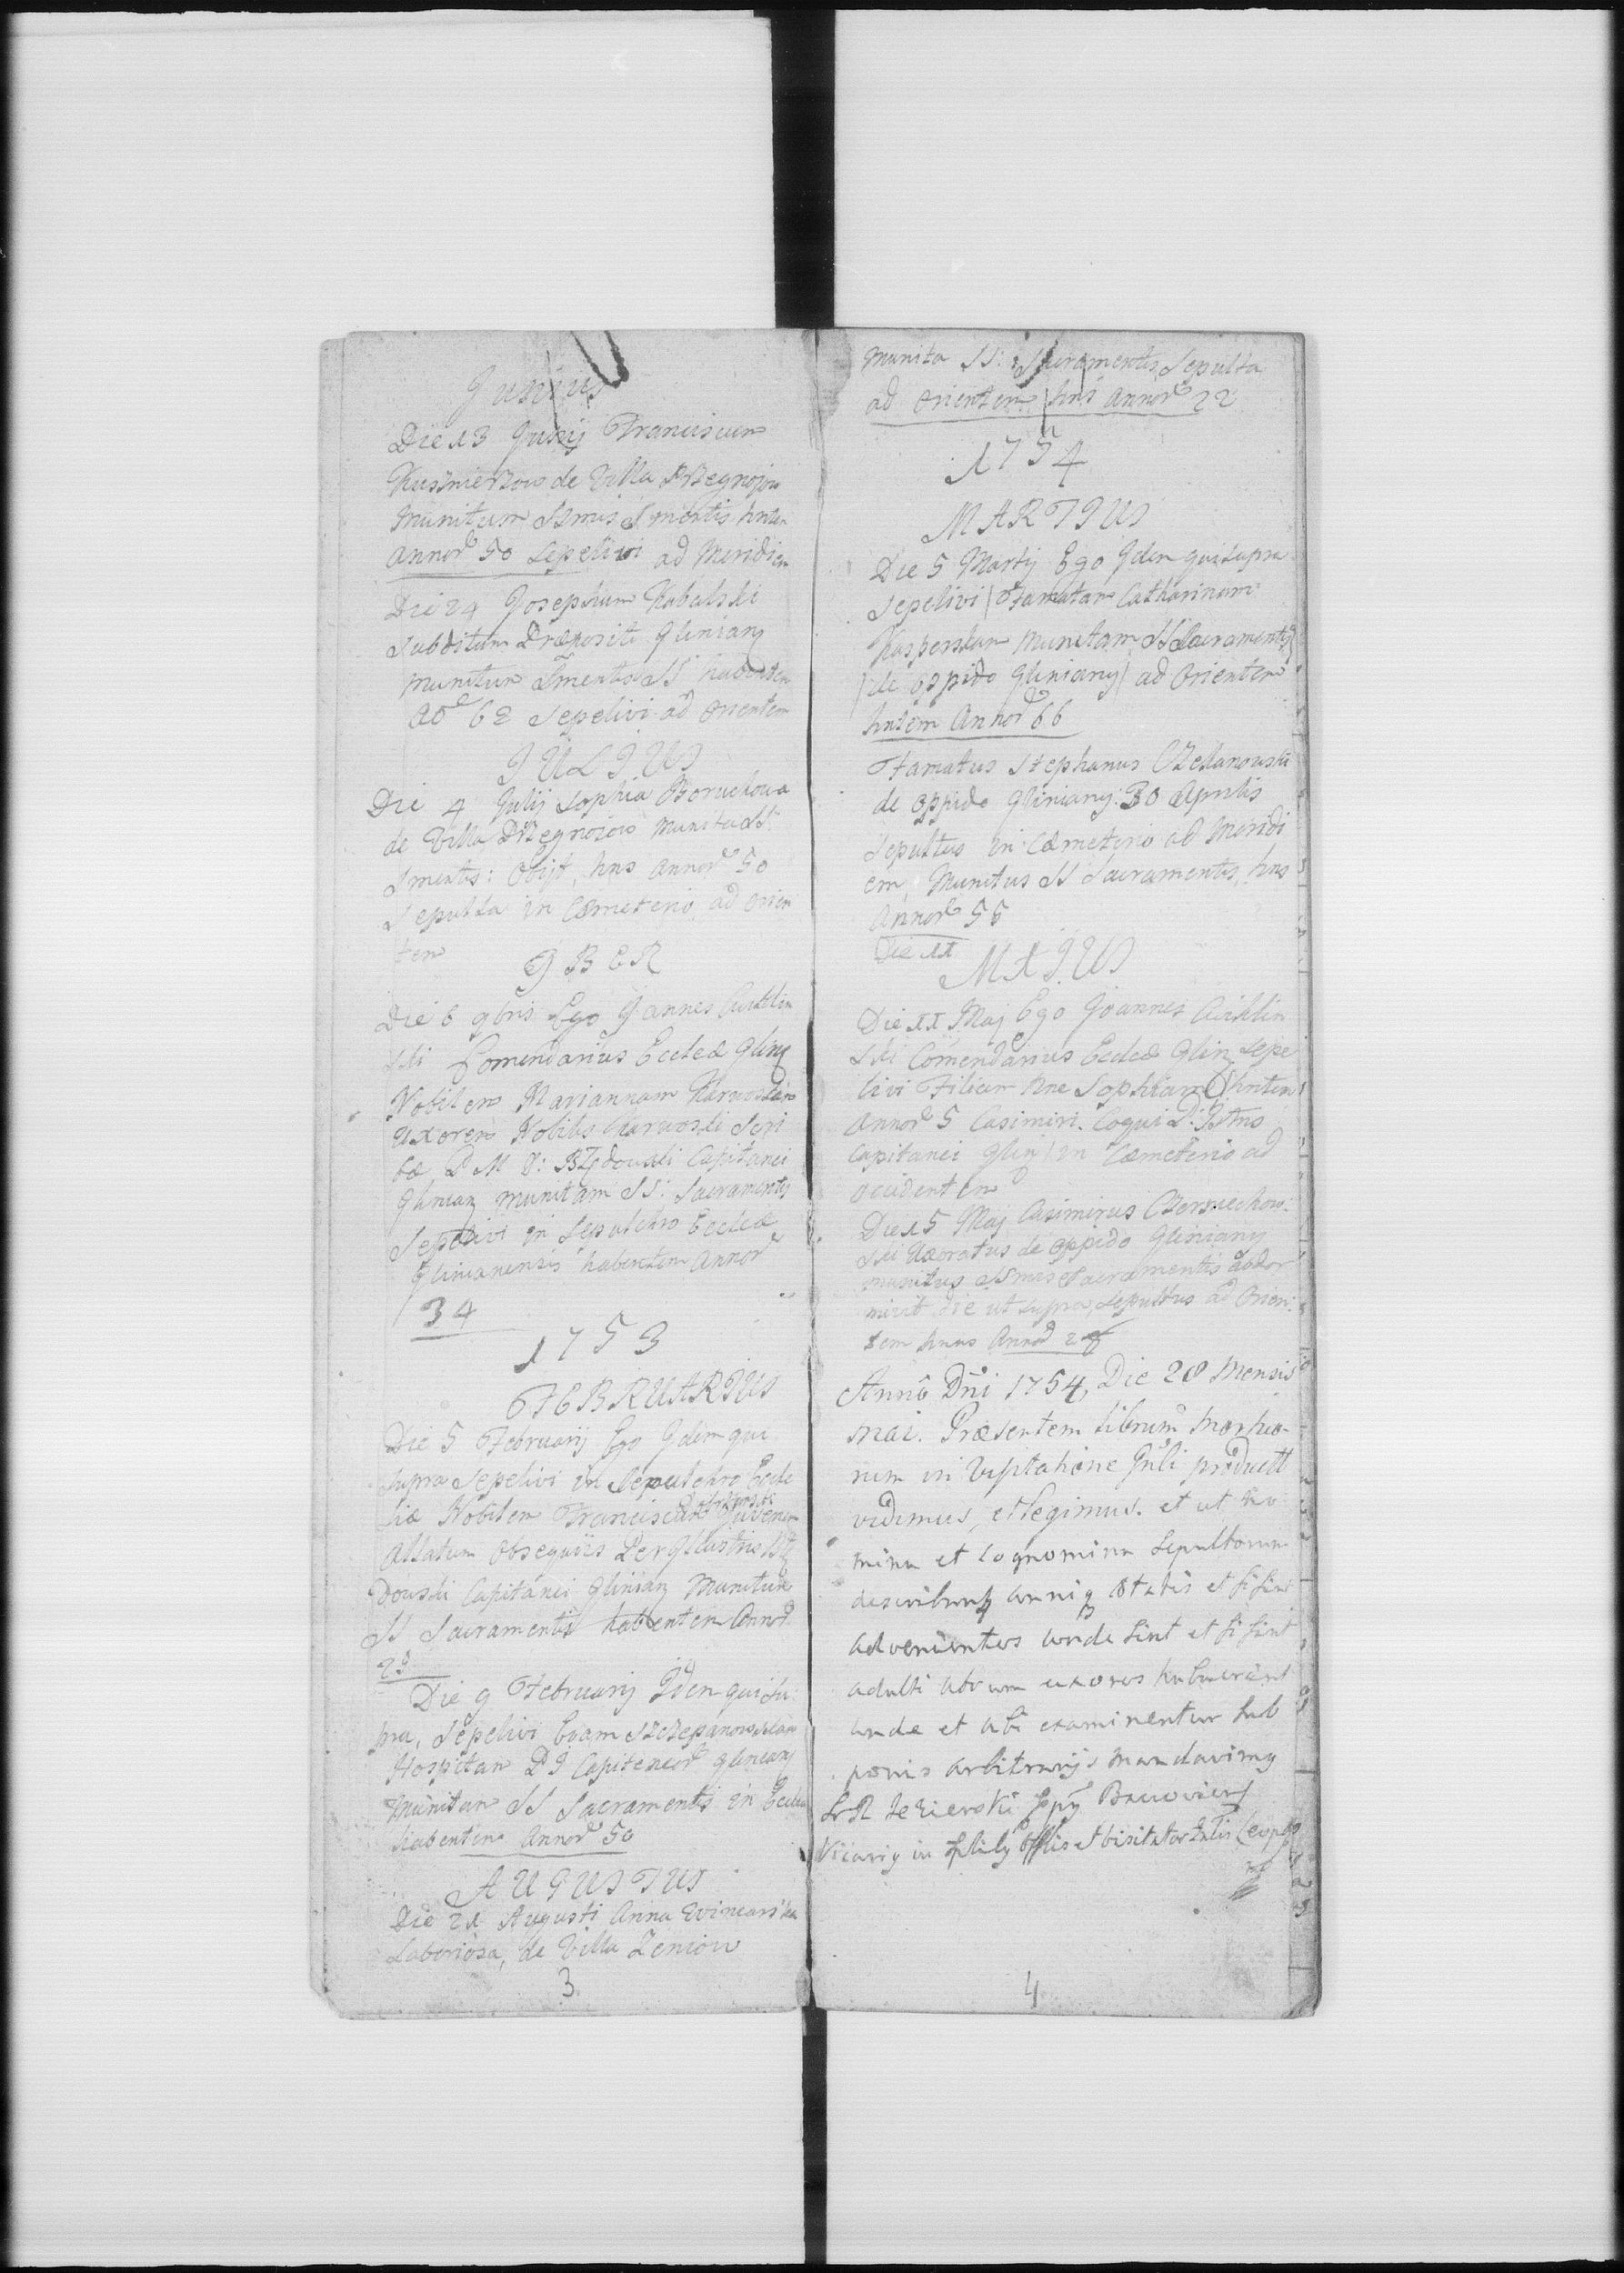 Junius
Die 13 Junij Franciscum
Kusnierzow de Villa Przegnojow
munitum SSmis Smentis hntem
annor 50 Sepelivi ad Meridiem
Die 24 Josephum Kabalski
Subditum Præpositi Gliniany
munitum Smentis SS habentem
ao 62 Sepelivi ad Orientem
JULIUS
Die 4 Julij Sophia Boruchowa
de Villa Przegnojow munita SS:
Smentis: Obijt, hns annor 50
Sepulta in Cæmeterio ad Orien
tem
9BER
Die 6 9bris Ego Joannes
ski Comendarius Eccleæ Glin
Nobilem Mariannam
Uxorem Nobilis Karwoski Scri
bæ P M D: Capitanei
Glinian munitam SS: Sacramentis
Sepelivi in Sepulchro Eccleæ
Glinianensis habentem Annor
34
1753
FEBRUARIUS
Die 5 Februarij Ego Idem qui
supra Sepelivi in Sepulchro Eccle
siæ Nobilem Franciscum Juvenem
Obsequiis Perillustris
dowski Capitanei Glinian Munitum
SS Sacramentis habentem Annor
29
Die 9 Februarij Idem qui su
pra, Sepelivi Evam Szczepanowska
Hospitam Gliniany
Munitam SS Sacramentis in Ecclea
habentem Annor 50
AUGUSTUS
Die 21 Augusti Anna Winiarska
Laboriosa, de Villa Zeniow
3
Munita SS: Sacramentis, Sepulta
ad Orientem hns annor 22
1754
MARTIUS
Die 5 Martij Ego Idem qui supra
Sepelivi Famatam Catharinam
Kasperskam Munitam SS Sacramentis
de oppido Gliniany ad Orientem
hntem Annor 66
Famatus Stephanus
de Oppido Gliniany: 30 Aprilis
Sepultus in Cæmeterio ad Meridi
em Munitus SS Sacramentis, hns
Annor 55
Die 11
MAIUS
Die 11 Maj Ego Joannes
ski Comendarius Eccleæ Glin Sepe
livi Filiam Sophiam hntem
Annor 5 Casimiri Coqui
Capitanei Glin in Cæmeterio ad
occidentem
Die 15 Maj Casimirus Czerniechow
ski Uxoratus de Oppido Gliniany
munitus SSmis Sacramentis obdor
mivit die ut supra, Sepultus ad Orien
tem hns Annor
Anno Dni 1754, Die 28 Mensis
Mai. Præsentem librum Mortuo-
rum in Visitatione Gnli product
vidimus, et legimus. et ut no
mina et cognomina Sepultorum
describant anni q ætatis et si sint
advenientes unde sint et si sint
adulti utrum uxores habuerint
unde et ubi examinentur sub
poenis arbitrarijs mandavimus
Jezierski Eppus
Vicarius in et Visitator
4